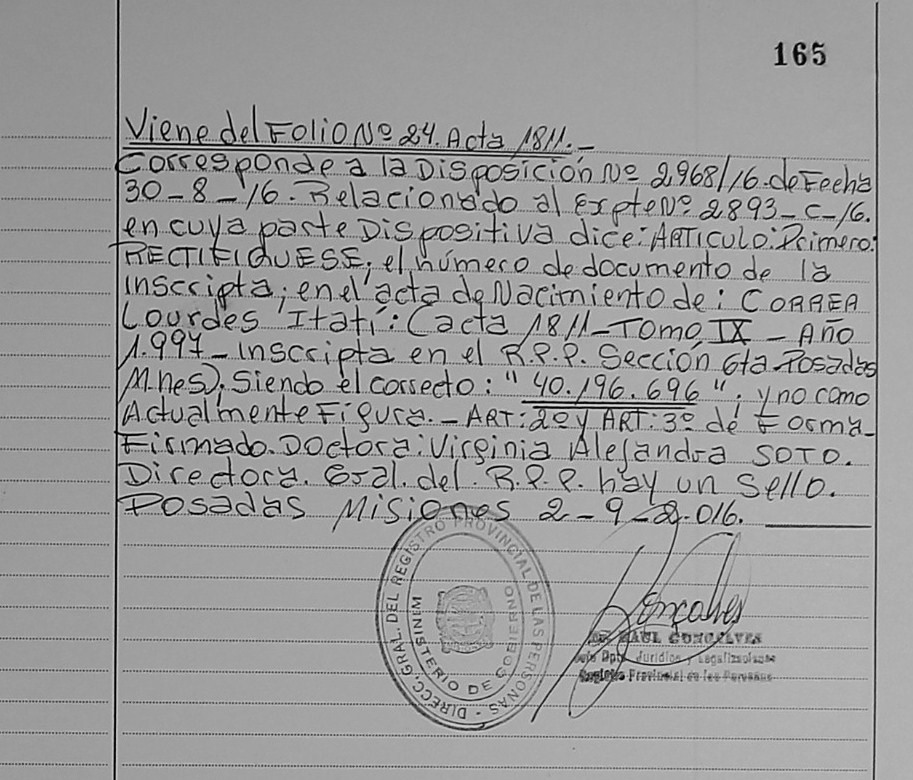 165
Viene del Folio Nº 24. Acta 1811.-
Corresponde a la Disposición Nº 2968/16. de Fecha
30-8-16. Relacionado al Expte Nº 2893-C-16.
en cuya parte Dispositiva dice: ARTICULO: Primero:
RECTIFIQUESE; el número de documento de la
inscripta; en el acta de Nacimiento de: CORREA
Lourdes Itatí: (acta 1811-Tomo IX - Año
1.997- inscripta en el R.P.P. Sección 6ta Posadas
Mnes). Siendo el correcto: "40.196.696"; y no como
Actualmente Figura.- ART: 2º y ART: 3º de Forma-
Firmado. Doctora: Virginia Alejandra SOTO.
Directora. Gral. del. R.P.P. hay un Sello.
Posadas Misiones 2-9-2.016.
DIRECC. GRAL. DEL REGISTRO PROVINCIAL DE LAS PERSONAS -
MINISTERIO DE GOBIERNO
Gonçalves
RAUL GONCALVES
Jefe Dpto. Jurídico y Legalizaciones
Registro Provincial de las Personas